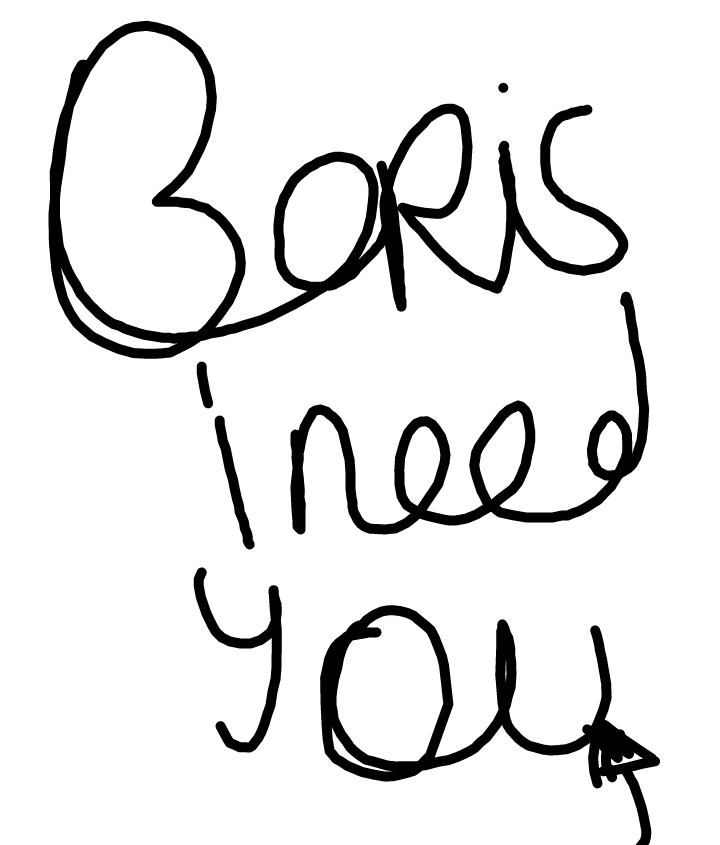 Boris
i need
you